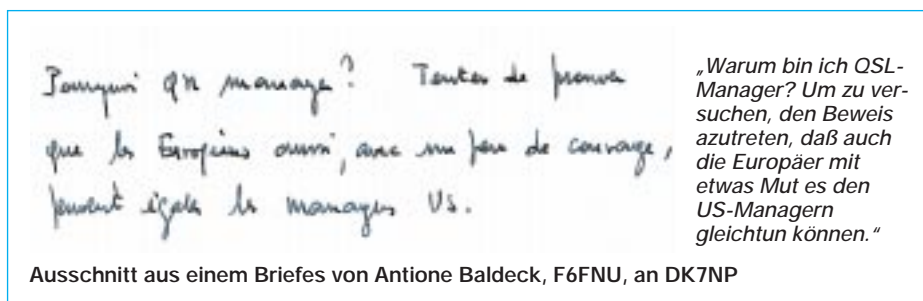 Pourquoi QSL manager? Tenter de prouver
que les Européens aussi, avec un peu de courage,
peuvent égaler les managers US.
„Warum bin ich QSL-
Manager? Um zu ver-
suchen, den Beweis
azutreten, daß auch
die Europäer mit
etwas Mut es den
US-Managern
gleichtun können.“
Ausschnitt aus einem Briefes von Antione Baldeck, F6FNU, an DK7NP